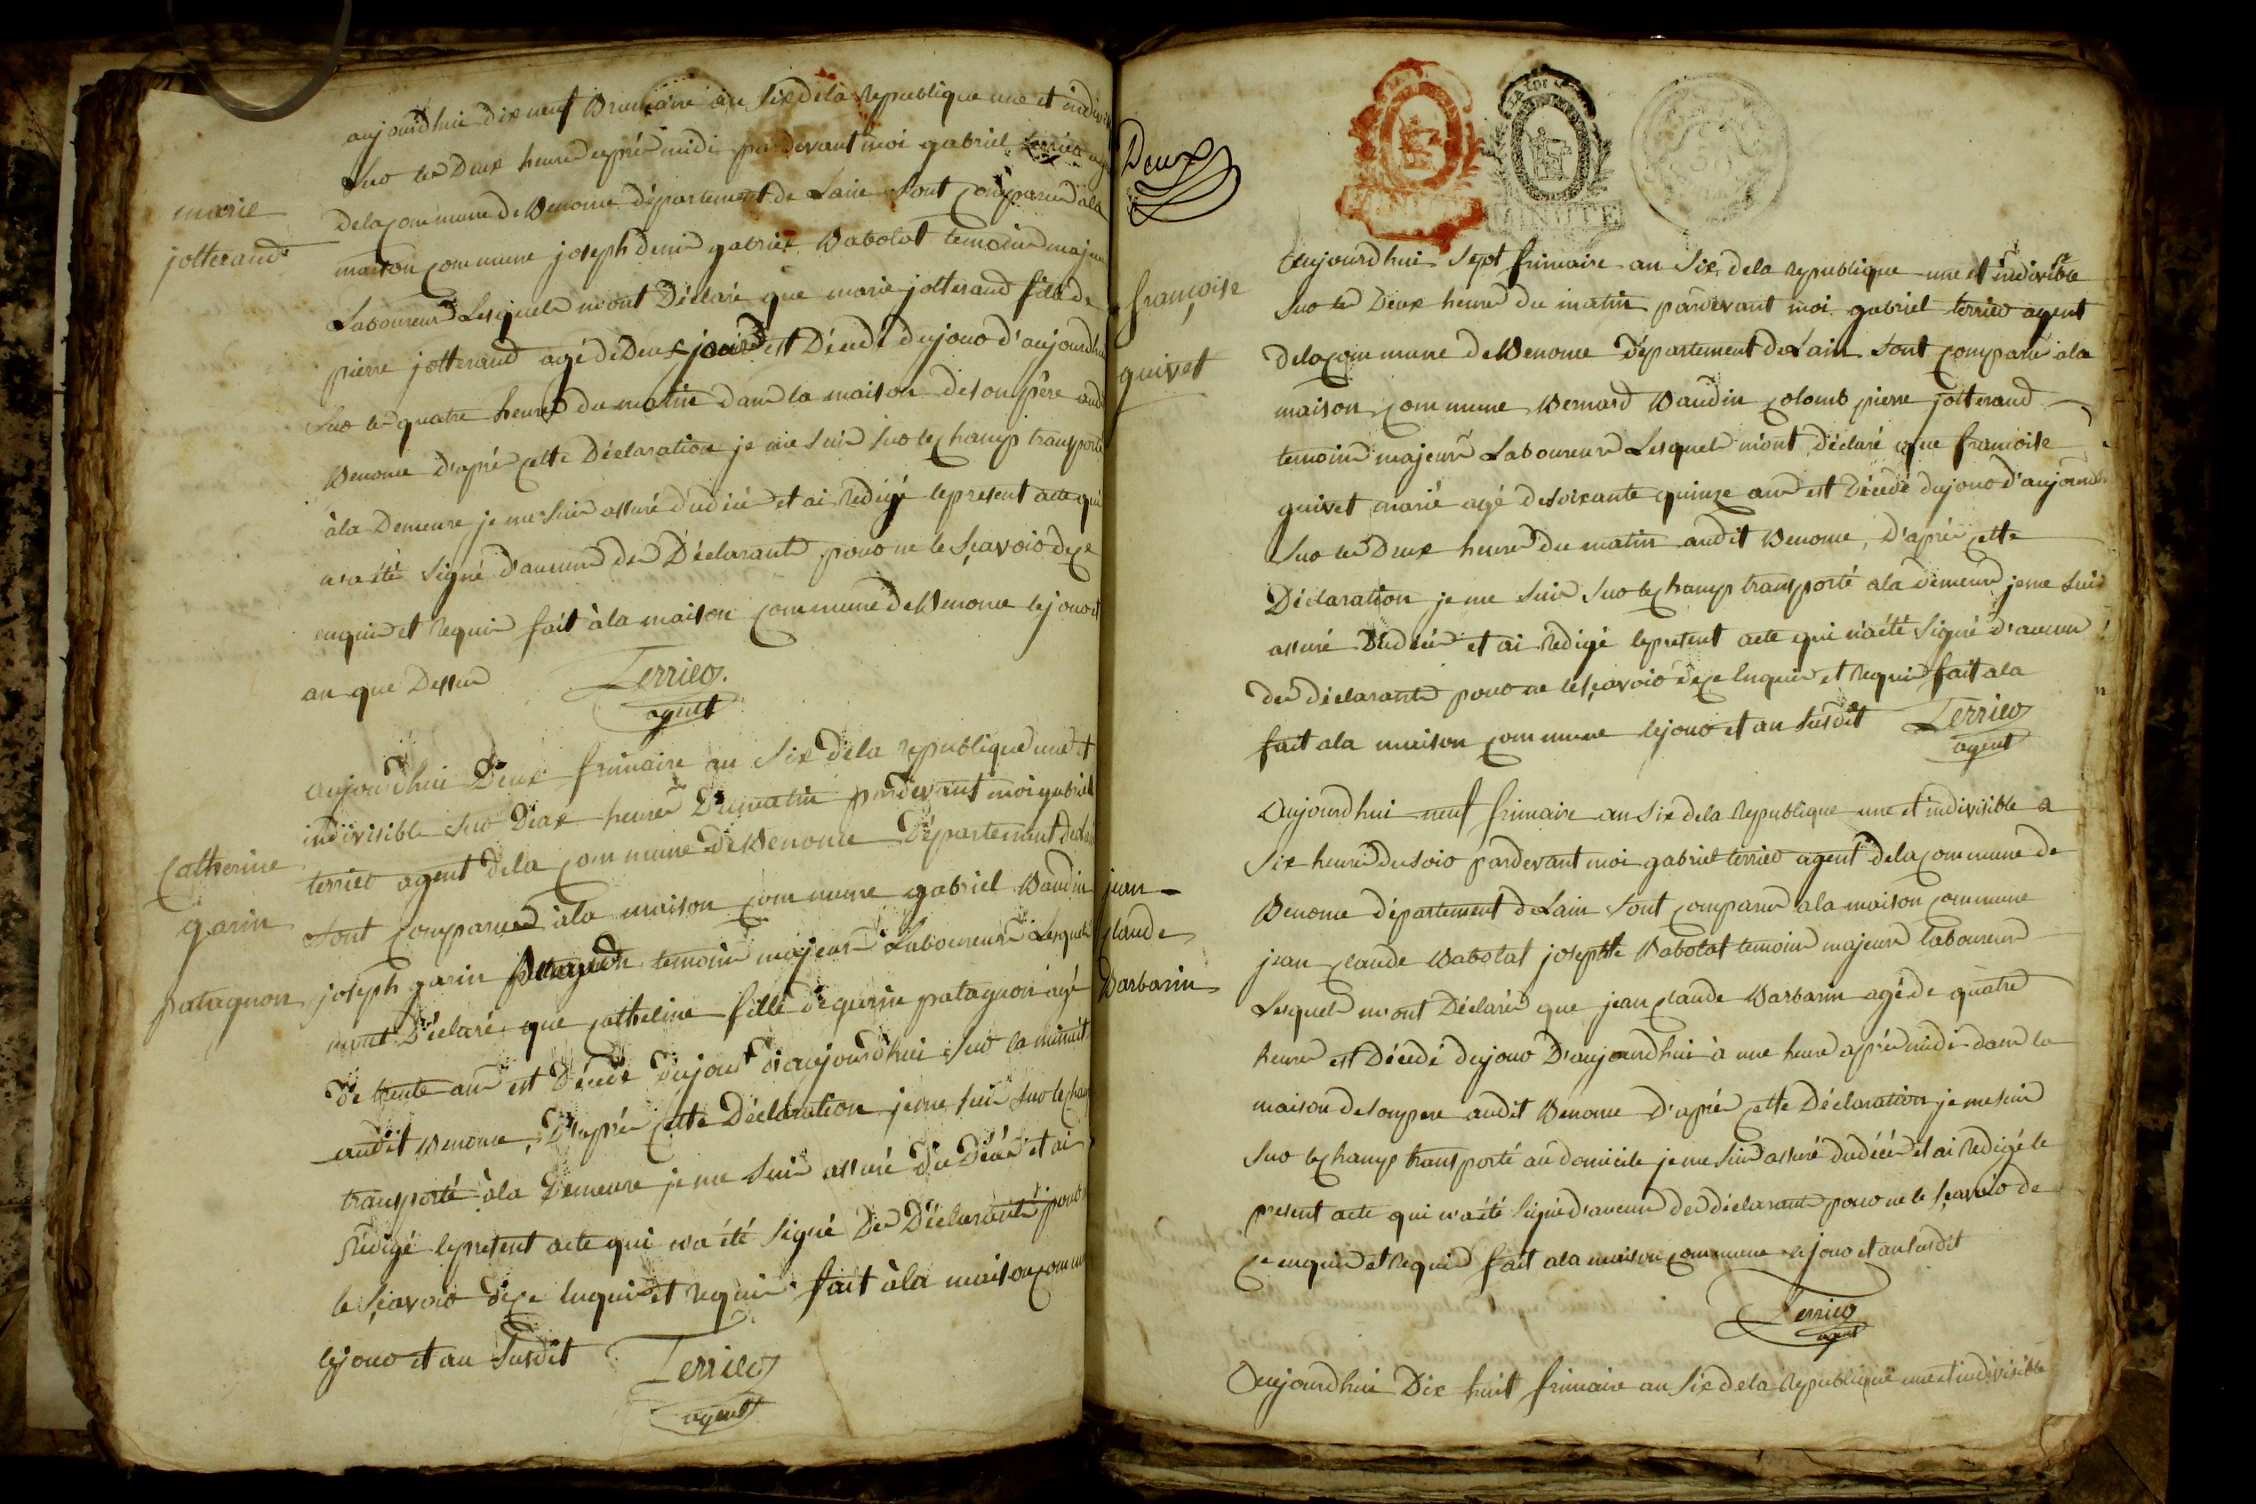 marie
jotterand
aujourdhui dix neuf Brumaire an Six dela republique une et indivi
Sur les Deux heures après midi pardevant moi gabriel terrier
dela commune de Benome département de Lain Sont comparus àla
maison commune joseph denis gabriel Babolat temoins majeurs
Laboureurs Lesquels mont Déclaré que marie jotterand fille de
pierre jotterand agé de Deux jours est Décédé dujour d'aujourdhui
Sur les quatre heures du matin dans la maison deson père audit
Benome d'après cette Déclaration je me Suis Sur lechamp transporté
àla Demeure je me Suis assuré dudécé et ai redigé lepresent acte qui
na été Signé d'aucuns des Déclarants pour ne le Sçavoir dece
enquis et requis fait àla maison commune de Benome lejour et
an que Dessus
Terrier
agent
Catherine
garin
patagnon
aujourdhui Deux frimaire an Six dela republique une et
indivisible Sur Deux heures Dumatin pardevant moi gabriel
terrier agent dela commune de Benome Département delain
Sont comparus àla maison commune gabriel Baudin
joseph garin temoins majeurs Laboureurs Lesquels
mont Déclaré que catheline fille de garin patagnon agé
de trente ans est Décédé Dujour d'aujourdhui Sur la minuit
audit Benome, D'après cette Déclaration jeme Suis Sur lecham
transporté àla Demeure je me Suis assuré du Décé et ai
rédigé lepresent acte qui na été Signé Des Déclarants pour
le Sçavoir dece Enquis et requis fait àla maison commu
lejour et an Susdit
Terrier
agent
Deux
françoise
guivet
Aujourdhui Sept frimaire an Six dela republique une et indivisible
Sur les Deux heures du matin pardevant moi gabriel terrier agent
dela commune de Benome Département de Lain Sont comparus àla
maison commune Bernard Baudin colomb pierre jotterand
temoins majeurs Laboureurs Lesquels mont déclaré que françoise
guivet marié agé desoixante quinze ans est Décédé dujour d'aujourdhui
Sur les Deux heures du matin audit Benome, D'après cette
Déclaration je me Suis Sur lechamp transporté ala demeure jeme Suis
assuré Dudécés et ai redigé lepresent acte qui na été Signé d'aucun
des déclarants pour ne leSçavoir dece Enquis et requis fait ala
fait ala maison commune lejour et an Susdit
Terrier
agent
jean
claude
Barbarin
Aujourdhui neuf frimaire an Six dela republique une et indivisible a
Six heures dusoir pardevant moi gabriel terrier agent dela commune de
Benome département deLain Sont comparus ala maison commune
jean claude Babolat joseph Babolat temoins majeurs laboureurs
Lesquels mont Déclarés que jean claude Barbarin agé de quatre
heures est Décédé dujour D'aujourdhui à une heure après midi dans la
maison desonpere audit Benome D'après cette Déclaration je me suis
Sur lechamp transporté au domicile je me Suis assuré dudécés et ai redigé le
present acte qui na été Signé d'aucun des déclarants pour ne le Sçavoir de
ce enquis et requis fait ala maison commune lejour et an susdit
Terrier
agent
Aujourdhui Dix huit frimaire an Six dela Republique une et indivisible